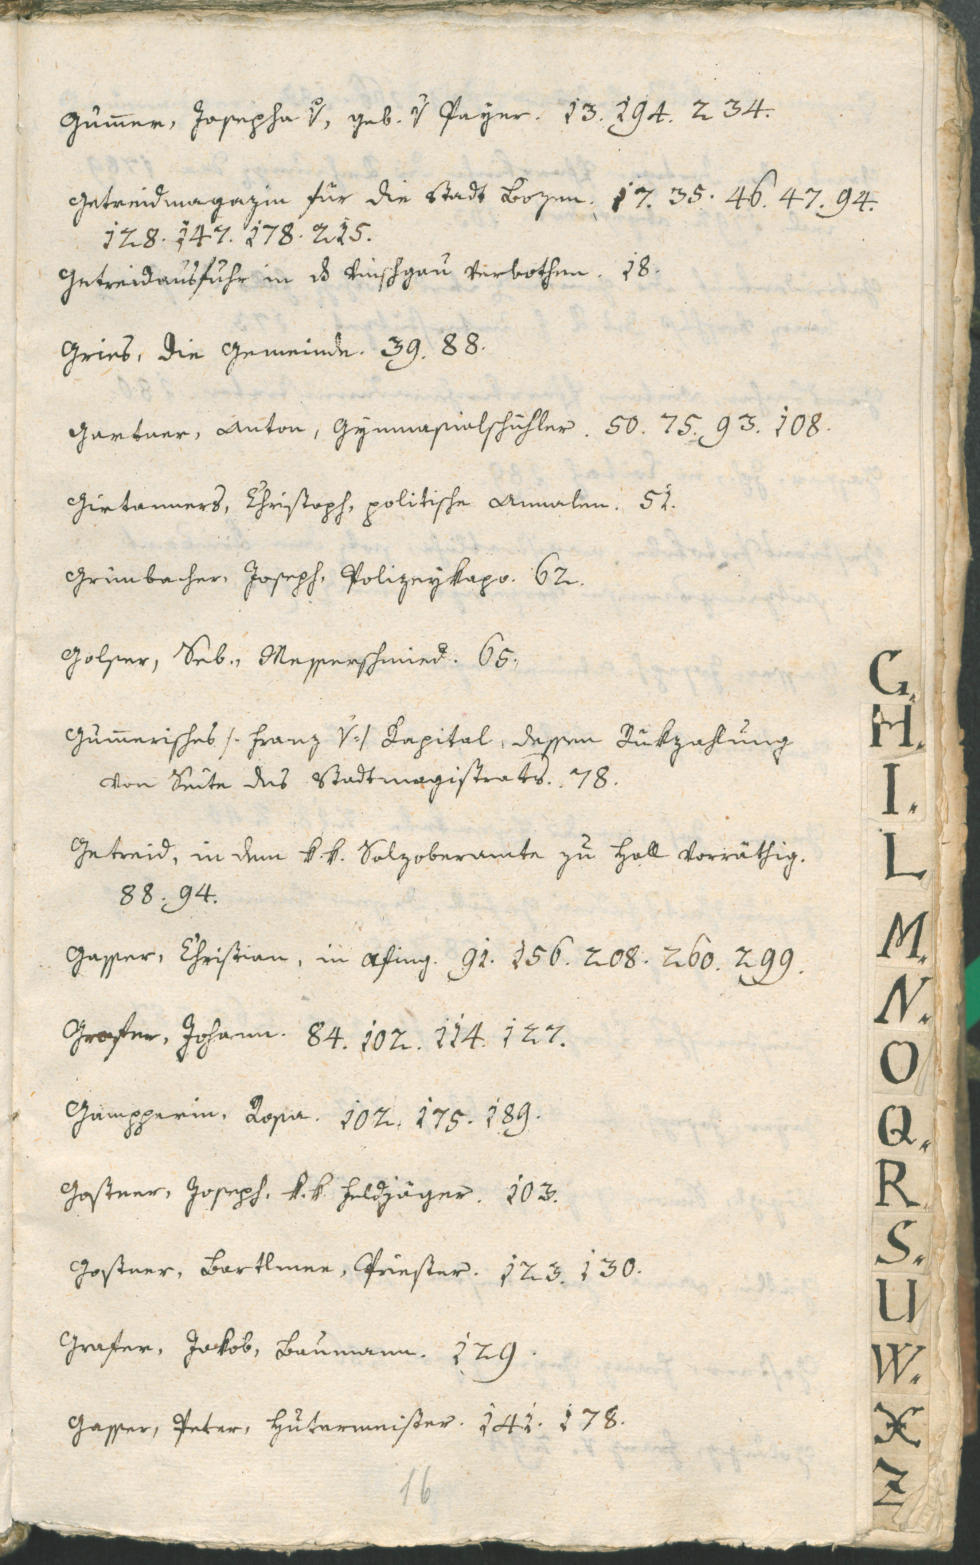 Gum̅er, Josepha v, geb. v Payer. 13. 194. 234.
Getreidmagazin für die Stadt Bozen. 17. 35. 46. 47. 94.
128. 147. 178. 215.
Getreidausfuhr in d Vinschgau verbothen. 18.
Gries, die Gemeinde. 39. 88.
Gartner, Anton, Gymnasialschühler. 50. 75. 93. 108.
Girtanners, Christoph, politische Annalen. 51.
Grünbacher, Joseph, Polizeykapo. 62.
Golser, Seb., Messerschmied. 65.
Gum̅erisches /: Franz v :/ Kapital, dessen Rükzahlung
von Seite des Stadtmagistrats. 78.
Getreid, in dem k. k. Salzoberamte zu Hall vorräthig.
88. 94.
Gasser, Christian, in Afing. 91. 156. 208. 260. 299.
Grafer, Johann. 84. 102. 114. 127.
Gampperin, Rosa. 102. 175. 189.
Gostner, Joseph, k. k. Feldjäger. 103.
Gostner, Bartlmee, Priester. 123. 130.
Grafer, Jakob, Baumann. 129.
Gasser, Peter, Hutermeister. 141. 178.
16
G.
H.
I.
L
M.
N.
O
Q.
R.
S.
U
W.
X
Z